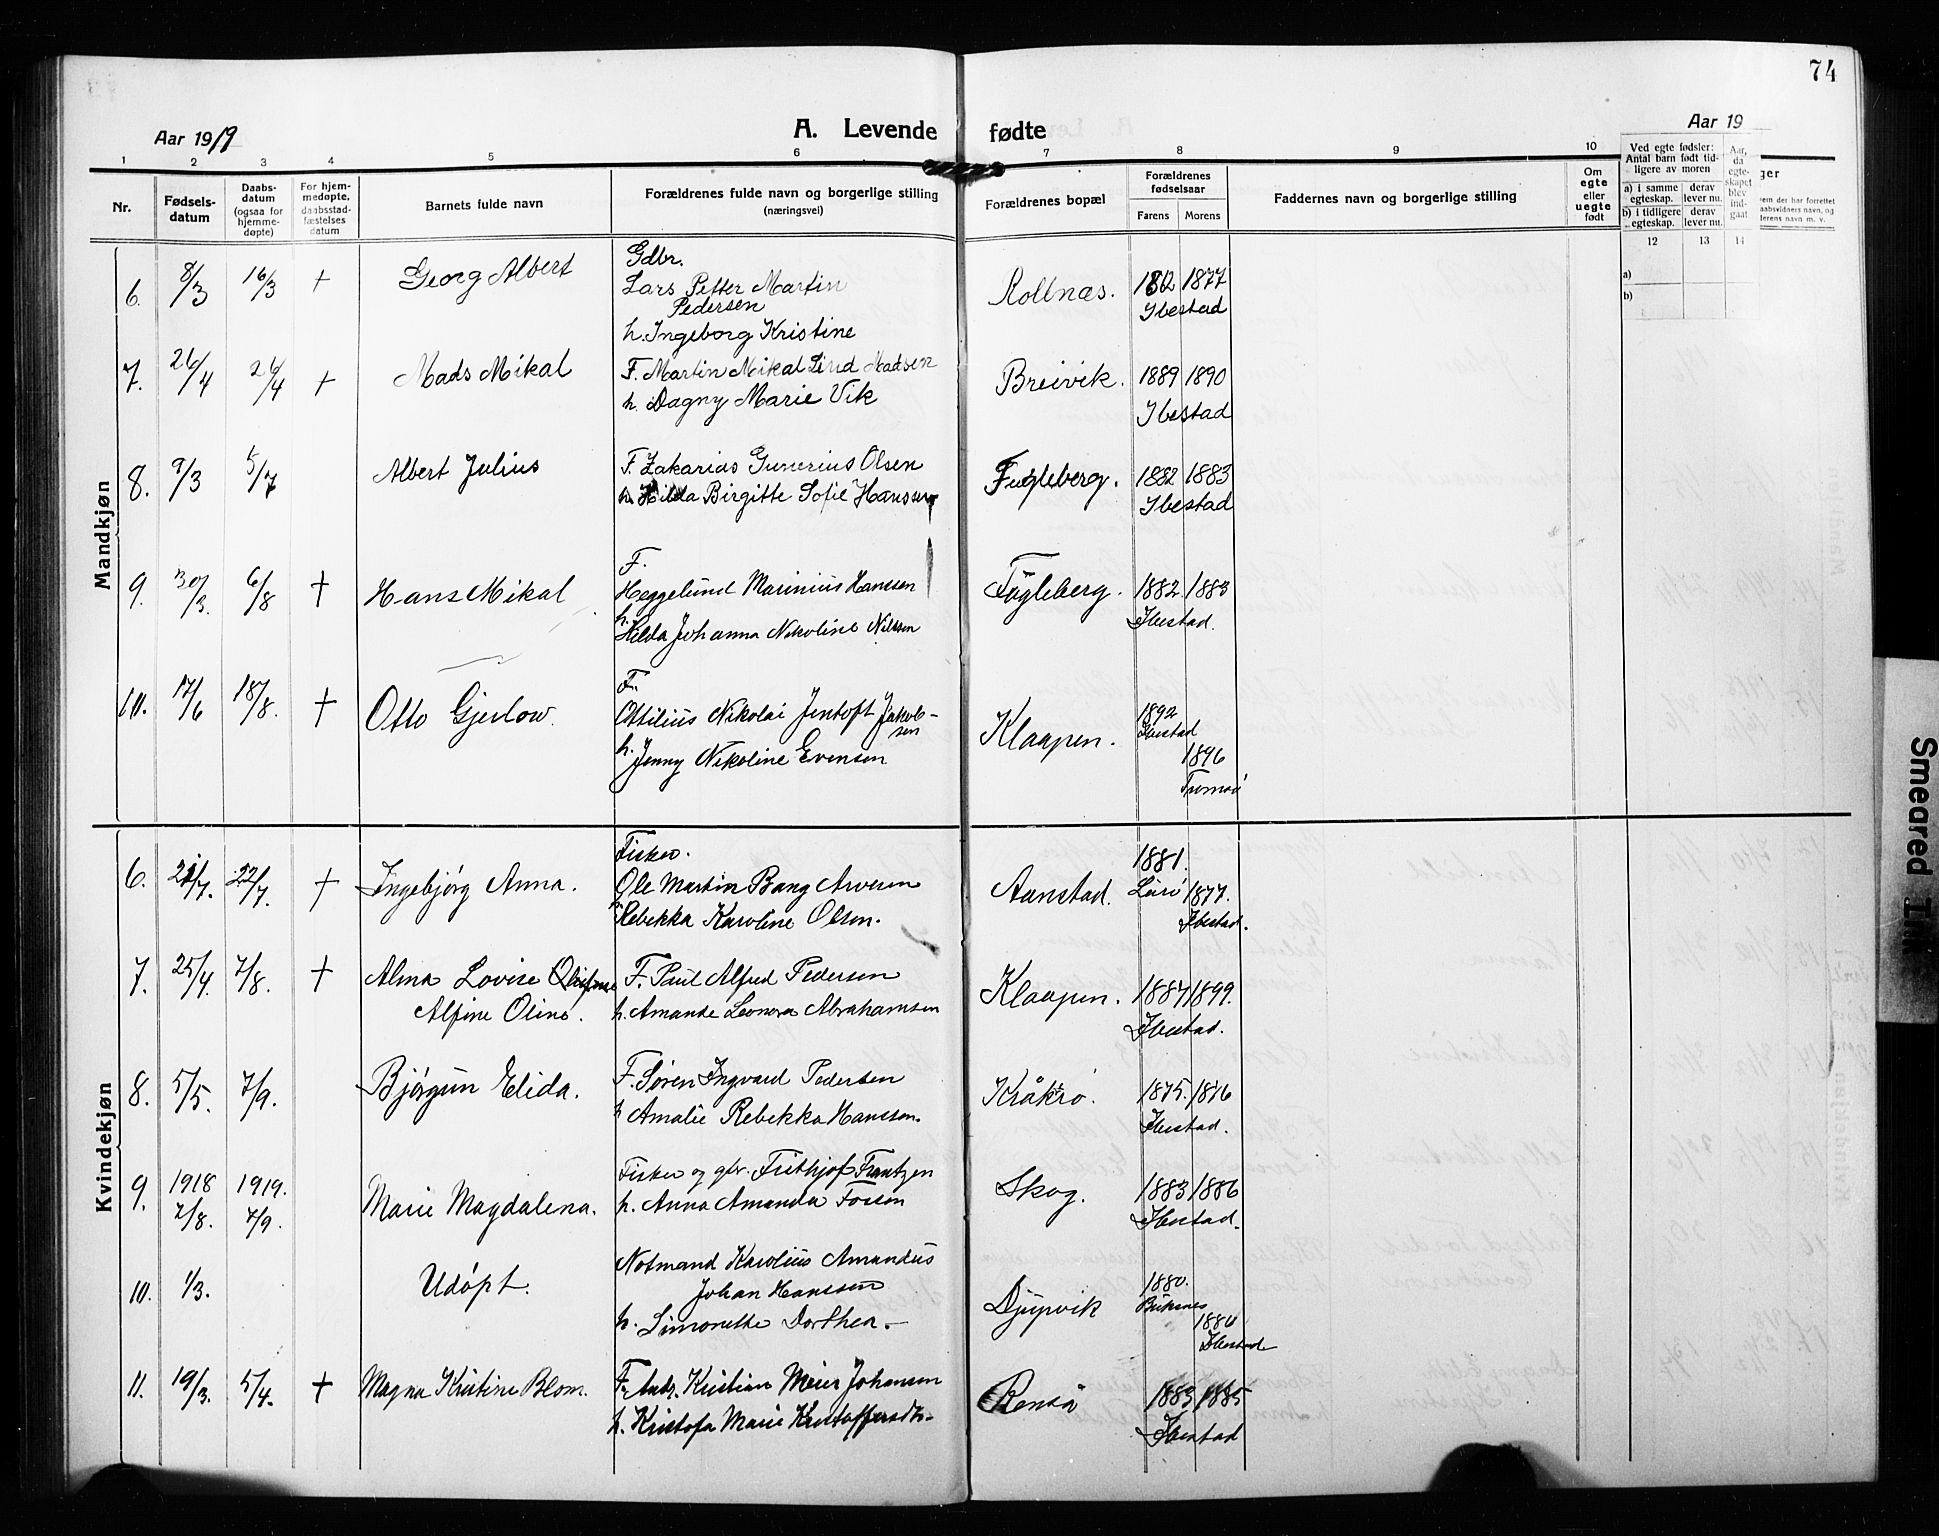 74
Aar 1919
A. Levende fødte
Aar 19
1 2 3 4 5 6 7 8 9 10
Nr.
Fødsels-
datum
Daabs-
datum
(ogsaa for
hjemme-
døpte)
For hjem-
medøpte,
daabsstad-
fæstelses
datum
Barnets fulde navn
Forældrenes fulde navn og borgerlige stilling
(næringsvei)
Forældrenes bopæl
Forældrenes
fødselsaar
Farens Morens
Faddernes navn og borgerlige stilling
Om
egte
eller
uegte
født
Ved egte fødsler:
Antal barn født tid-
ligere av moren
a) i samme
egteskap.
derav
lever nu.
b) i tidligere
egteskap.
derav
lever nu.
Aar,
da
egte-
skapet
blev
ind-
gaat
12 13 14
a)
b)
Mandkjøn
6. 8/3 16/3 + Georg Albert
Gdbr.
Lars Petter Martin
Pedersen
h. Ingeborg Kristine
Rollnæs. 1877
Ibestad
7. 26/4 26/4 + Mads Mikal
F. Martin Mikal Lind Madsen
h. Dagny Marie Vik
Breivik. 1889 1890
Ibestad
8. 9/3 5/7 Albert Julius
F. Zakarias Gunerius Olsen
h. Hilda Birgitte Sofie Hanssen
Fugleberg. 1882 1883
Ibestad
9. 30/3. 6/8 + Hans Mikal
F.
Heggelund Marinius Hanssen
h.
Hilda Johanna Nikoline Nilssen
Fugleberg. 1882 1883
Ibestad.
10. 17/6 18/8. + Otto Gjerlow.
F.
Ottilius Nikolai Jentoft Jakob-
sen
h. Jenny Nikoline Evensen
Klaapen. 1892
Ibestad
1896
Tromsö
Kvindekjøn
6. 21/7. 22/7. + Ingebjörg Anna.
Fisker.
Ole Martin Bang Arvesen
Rebekka Karoline Olsen.
Aanstad. 1881.
1877.
Ibestad.
7. 25/4. 7/8. + Alma Lovise
Alfine Oline.
F. Paul Alfred Pedersen
h. Amanda Leonora Abrahamsen
Klaapen. 1884 1899.
Ibestad.
8. 5/5. 7/9. Bjórgun Elida.
F. Sóren Ingvard Pedersen
h Amalie Rebekka Hanssen.
Kråkrö. 1875. 1876
Ibestad.
9. 1918 7/8. 1919. 7/9. Marie Magdalena.
Fisker og gbr. Frithjof Frantzen
h. Anna Amanda Fossen
Skog. 1883 1886
Ibestad.
10. 1/3. Udópt.
Notmand Karolius Amandus
Johan Hanssen
h. Simonette Dorthea.
Djupvik 1880.
Buksnes
Ibestad
11. 19/3. 5/4. + Magna Kristine Blom.
F. Andr. Kristian Meier Johansen
h. Kristofa Marie Kristoffersdtr.
Renså 1883 1885
Ibestad
Smeared Ink